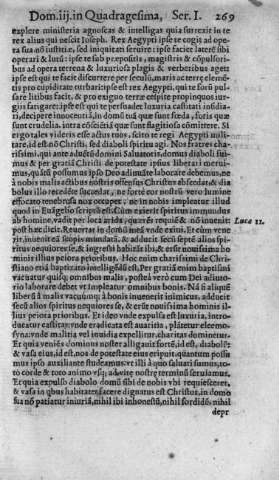 Dom.iij.in Quadragesima, Ser. I. 269
explere ministeria agnoscas & intelligas quia surrexit in te
rex alius qui nescit Ioseph. Rex Aegypti ipse te cogit ad ope-
ra sua nō inuitis, sed iniquitati seruire: ipse facit laterē sibi
operari & lutū: ipse te sub præpositis, magistris & cōpulsori-
bus ad opera terrena & luxuriosa plagis & verberibus agit:
ipse est qui te facit discurrere per sęculū, maris ac terrę elemē-
tis pro cupiditate turbari: ipse est rex Aegypti, qui te facit pul-
sare litibus
facit, & pro exiguo terrę cespite propinquos iur-
gijs fatigare: ipse est qui te persuadet luxuria castitari insidia-
ri, decipere innocentē, in domū tuā quæ sunt fœda, foris quæ
sunt crudelia, intra cōsciētiā quæ sunt flagitiosa cōmittere. Si
ergo tales videris esse actus tuos, scito te regi Aegypti mili-
tare, id est nō Christi, sed diaboli spiritu agi. Nos fratres cha-
rissimi, qui ante aduētū domini Saluatoris, domus diaboli fui-
mus & per gratiā Christi de potestate ipsius liberari merui-
mus, quātū possumus ipso Deo adiuuāte laborare debemus, ne
à nobis malis actibus nostris offensus Christus abscedat, & dia-
bolus illo recedēte succedat, ne fortè cor nostrū vero lumine
effocato tenebrosa nox occupet, ne in nobis impleatur illud
quod in Euāgelio scriptū est. Cum exierit spiritus immundus
ab homine, vadit per loca arida, quærēs requiē: & nō inuenit
post hæc dicit. Reuertar in domū meā vnde exiui. Et cùm vene-
rit, inuenit eā scopis mundatā, & adducit secū septē alios spi-
ritus nequiores se, & ingressi habitāt ibi, & erūt nouissima ho-
minis illius peiora prioribus. Hoc enim charissimi de Chri-
stiano etiā baptizato intelligēdū est. Per gratiā enim baptismi
vacuatur quisq; omnibus malis, postea verò cum Dei adiuto-
rio laborare debet vt impleatur omnibus bonis. Nā si aliquē
liberū à malis vacuum à bonis inuenerit inimicus, adducit
secū alios spiritus nequiores se, & erūt nouissima hominis il-
lius peiora prioribus. Et ideo vnde expulsa est luxuria, intro-
ducatur castitas: vnde eradicata est auaritia, plātetur eleemo-
syna: vnde malitia vel inuidia expellitur, charitas dominetur.
Et quia veniēs dominus noster alligauit fortē, id est, diabolū:
& vasa eius, id est, nos de potestate eius eripuit, quantum possu-
mus ipso auxiliante studeamus, vt illi à quo saluati sumus, to-
to corde & toto animo vsq; ad vitæ nostræ terminū seruiamus.
Et quia expulso diabolo domū sibi de nobis vbi requiesceret,
& vasa in quibus habitaret facere dignatus est Christus, in domo
sua nō patiatur iniuriā, nihil ibi inhonestū, nihil sordidū, nihil
depr
Luca 11.